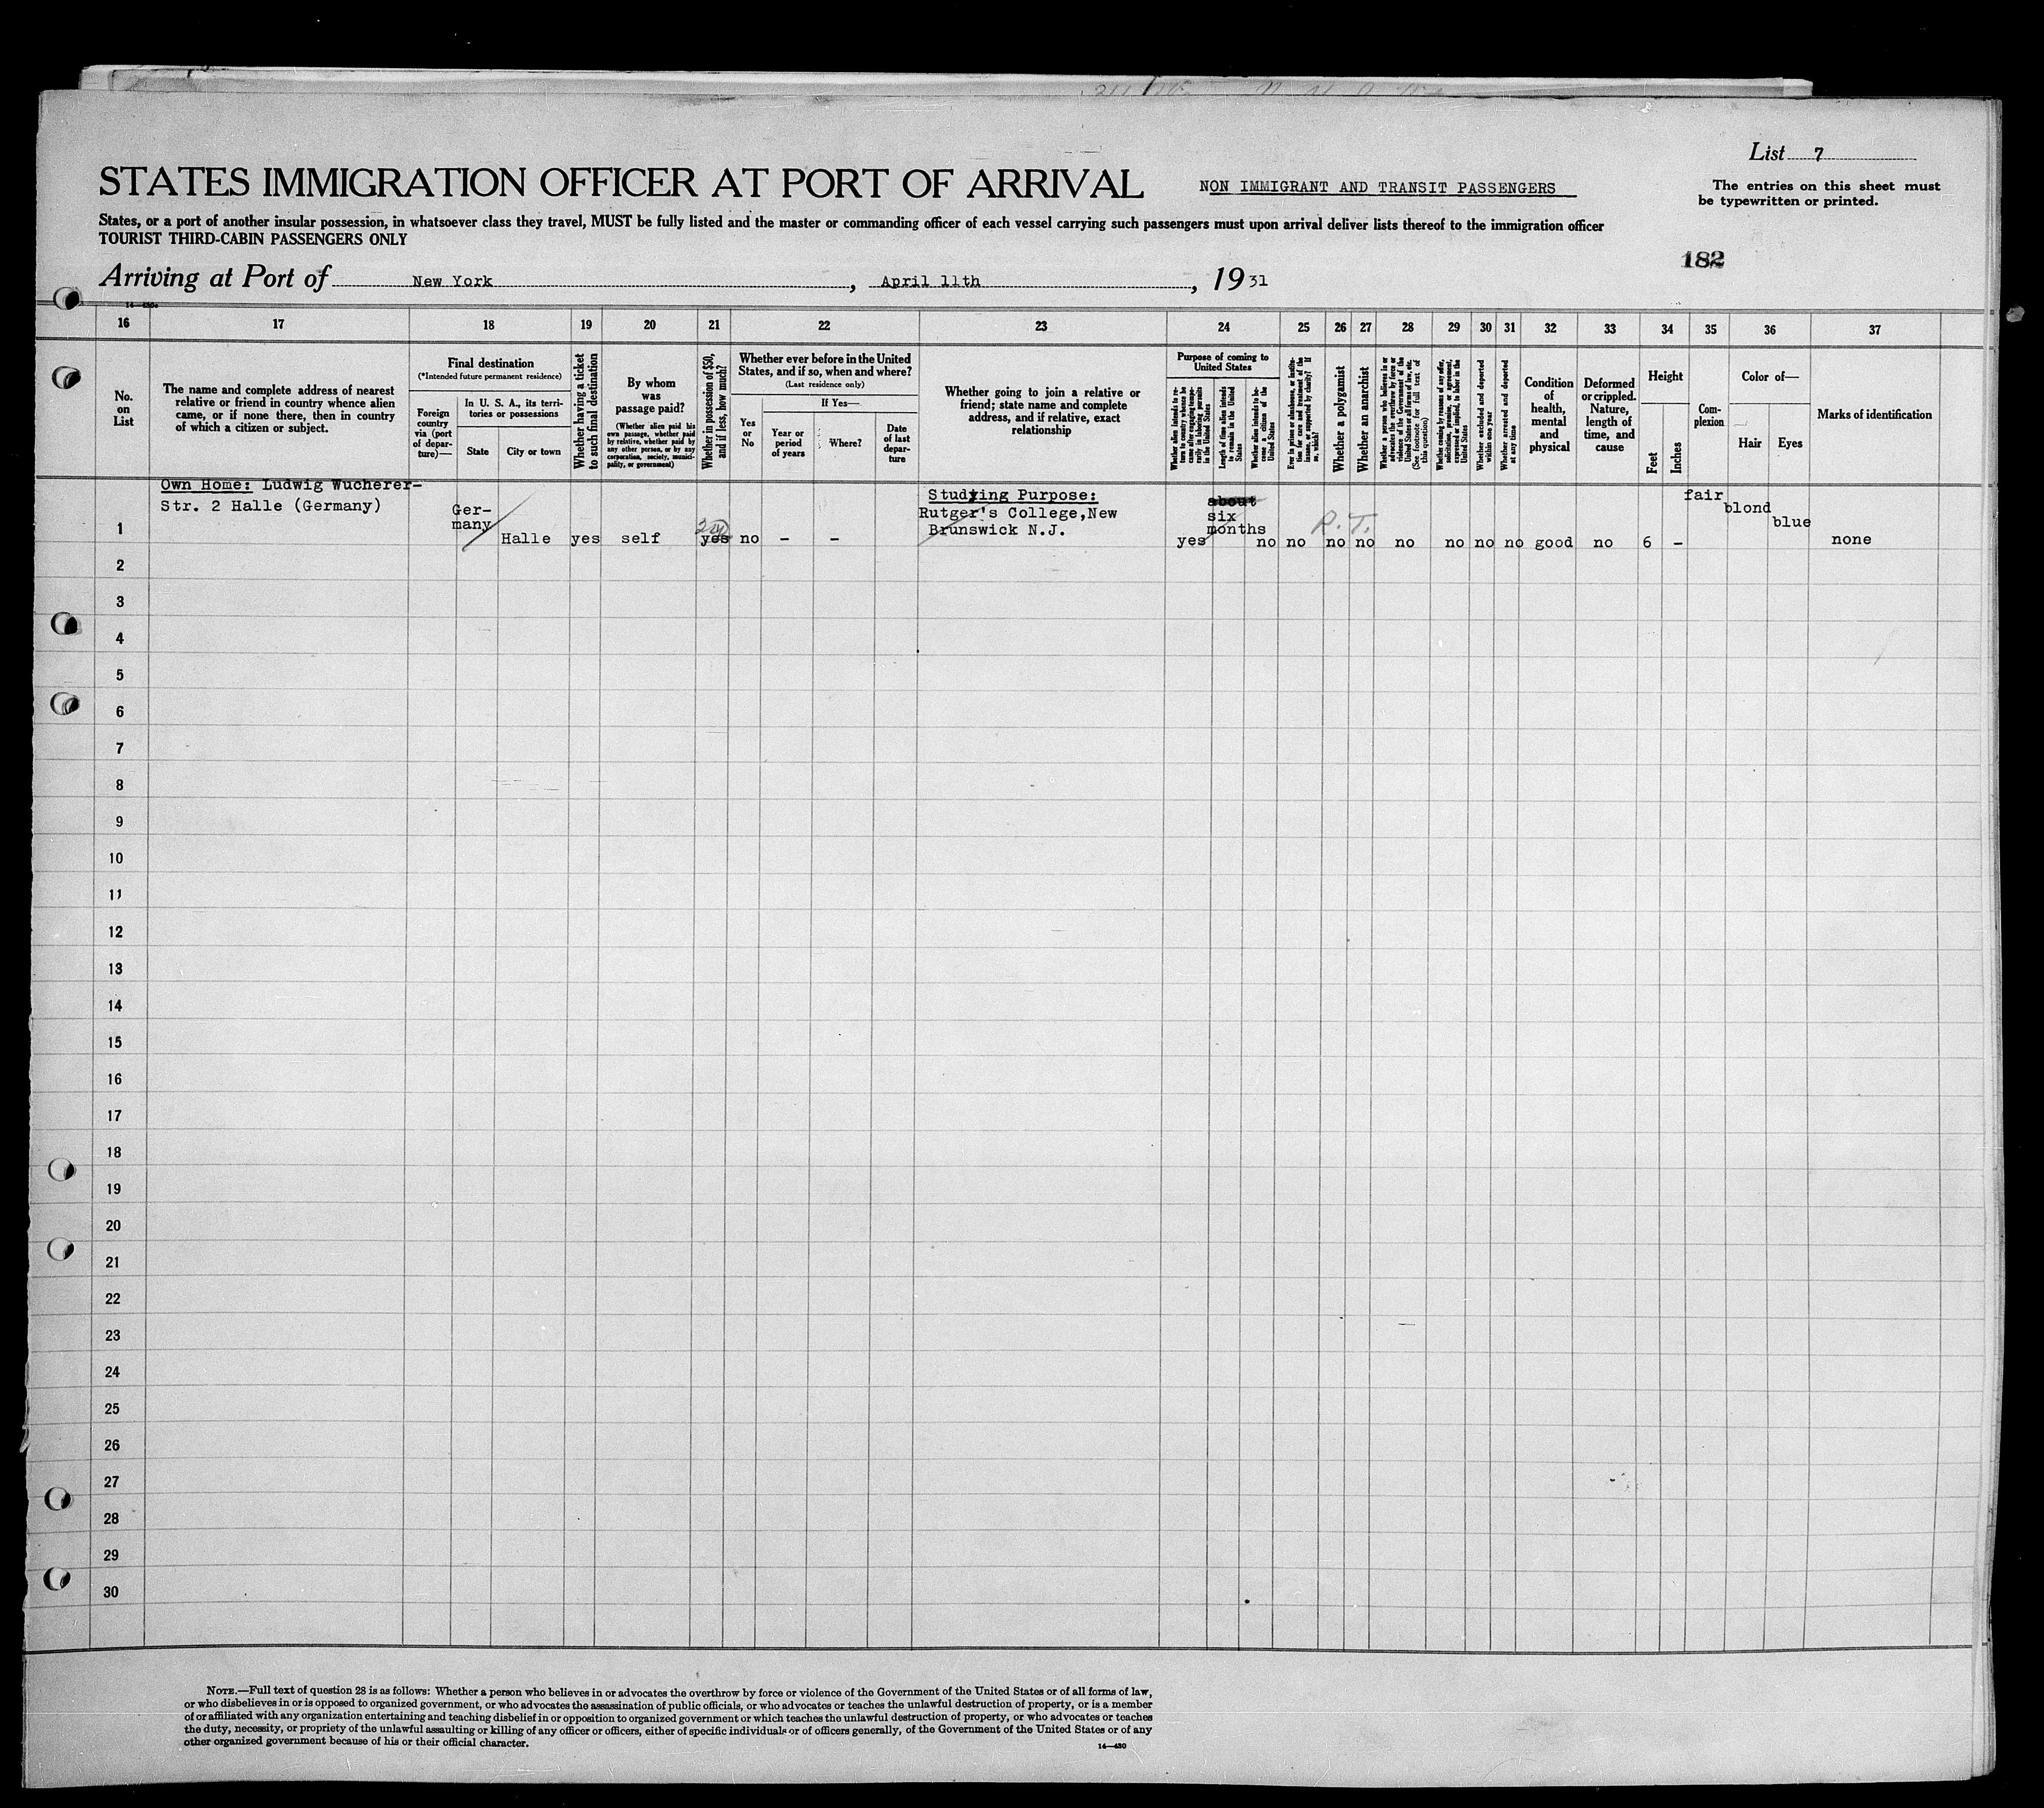 List 7
STATES IMMIGRATION OFFICER AT PORT OF ARRIVAL
NON IMMIGRANT AND TRANSIT PASSENGERS
The entries on this sheet must
be typewritten or printed.
States, or a port of another insular possession, in whatsoever class they travel, MUST be fully listed and the master or commanding officer of each vessel carrying such passengers must upon arrival deliver lists thereof to the immigration officer
TOURIST THIRD-CABIN PASSENGERS ONLY
182
Arriving at Port of New York, April 11th, 1931
16 17 18 19 20 21 22 23 24 25 26 27 28 29 30 31 32 33 34 35 36 37
No.
on
List
The name and complete address of nearest
relative or friend in country whence alien
came, or if none there, then in country
of which a citizen or subject.
Final destination
(*Intended future permanent residence)
Foreign
country
via (port
of depar-
ture)—
In U. S. A., its terri-
tories or possessions
State
City or town
Whether having a ticket
to such final destination
By whom
was
passage paid?
(Whether alien paid his
own passage, whether paid
by relative, whether paid by
any other person, or by any
corporation, society, munici-
pality, or government)
Whether in possession of $50,
and if less, how much?
Whether ever before in the United
States, and if so, when and where?
(Last residence only)
Yes
or
No
If Yes—
Year or
period
of years
Where?
Date
of last
depar-
ture
Whether going to join a relative or
friend; state name and complete
address, and if relative, exact
relationship
Purpose of coming to
United States
Whether alien intends to re-
turn to country whence he
came after engaging tempo-
rarily in laboring pursuits
in the United States
Length of time alien intends
to remain in the United
States
Whether alien intends to be-
come a citizen of the
United States
Ever in prison or almshouse, or institu-
tion for care and treatment of the
insane, or supported by charity? If
so, which?
Whether a polygamist
Whether an anarchist
Whether a person who believes in or
advocates the overthrow by force or
violence of the Government of the
United States or all forms of law, etc.
(See footnote for full text of
this question)
Whether coming by reasons of any offer,
solicitation, promise, or agreement,
expressed or implied, to labor in the
United States
Whether excluded and deported
within one year
Whether arrested and deported
at any time
Condition
of
health,
mental
and
physical
Deformed
or crippled.
Nature,
length of
time, and
cause
Height
Feet
Inches
Com-
plexion
Color of—
Hair
Eyes
Marks of identification
Own Home: Ludwig Wucherer-
Str. 2 Halle (Germany)
1
Ger-
many
Halle
yes
self
yes
no - -
Studying Purpose:
Rutger's College,New
Brunswick N.J.
yes
about
six
months
R.T.
no no no no no no no no good no 6 -
fair
blond
blue
none
2
3
4
5
6
7
8
9
10
11
12
13
14
15
16
17
18
19
20
21
22
23
24
25
26
27
28
29
30
NOTE.—Full text of question 28 is as follows: Whether a person who believes in or advocates the overthrow by force or violence of the Government of the United States or of all forms of law,
or who disbelieves in or is opposed to organized government, or who advocates the assassination of public officials, or who advocates or teaches the unlawful destruction of property, or is a member
of or affiliated with any organization entertaining and teaching disbelief in or opposition to organized government or which teaches the unlawful destruction of property, or who advocates or teaches
the duty, necessity, or propriety of the unlawful assaulting or killing of any officer or officers, either of specific individuals or of officers generally, of the Government of the United States or of any
other organized government because of his or their official character.
14—430